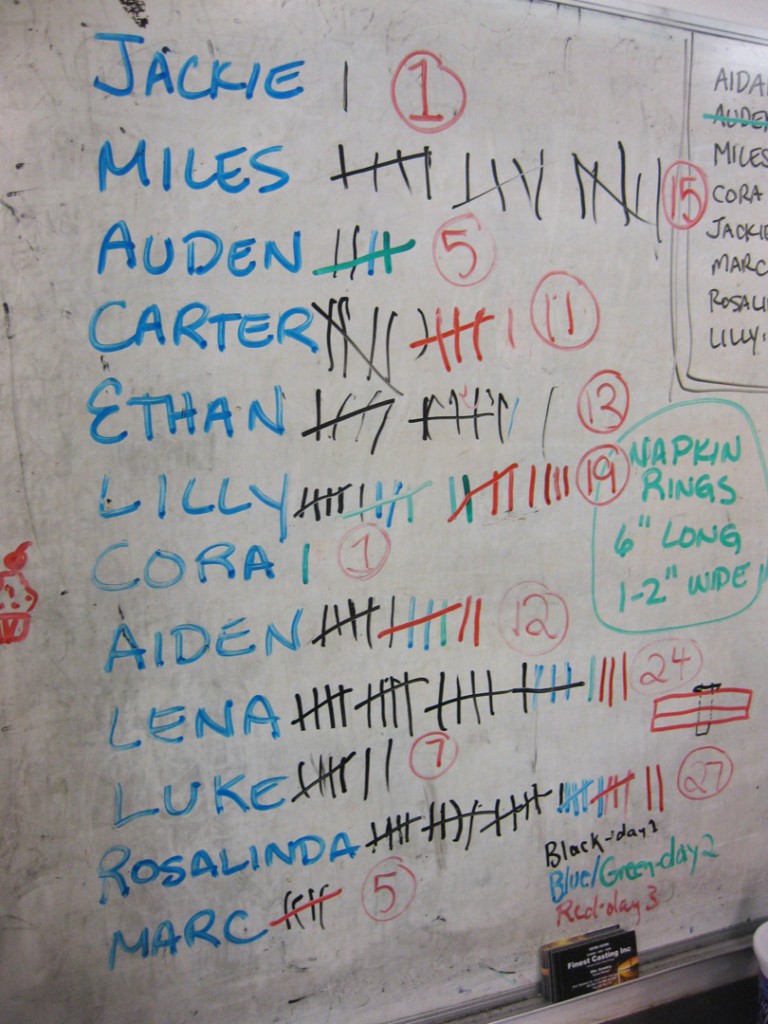 JACKIE 1
MILES 15
AUDEN 5
CARTER 11
ETHAN 12
LILLY 19
CORA 1
AIDEN 12
LENA 24
LUKE 7
ROSALINDA 27
MARC 5
Black-day 1
Blue/Green-day 2
Red-day 3
NAPKIN
RINGS
6" LONG
1-2" WIDE
AIDA
AUDE
MILES
CORA
JACKIE
MARC
ROSALI
LILLY
Finest Casting Inc